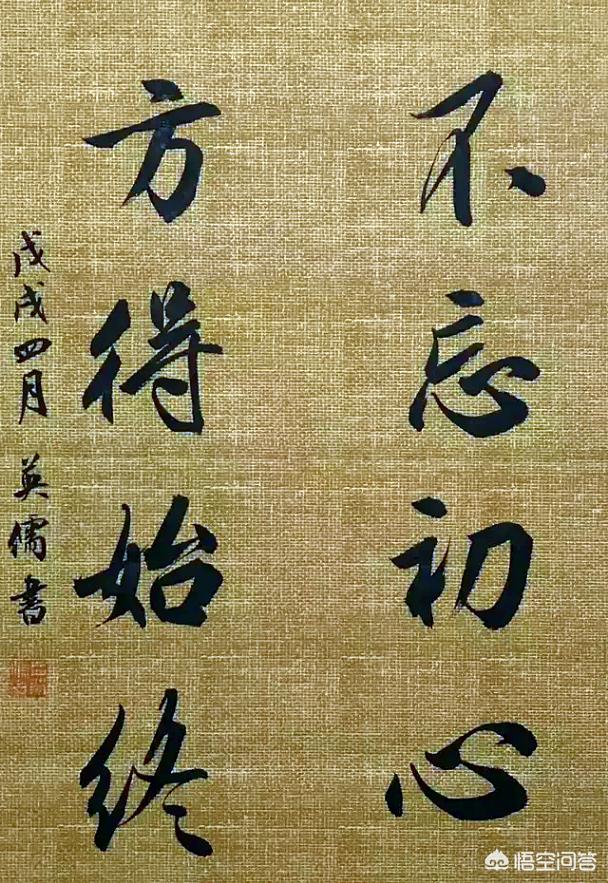 不忘初心
方得始终
戊戌四月 英儒書
悟空问答